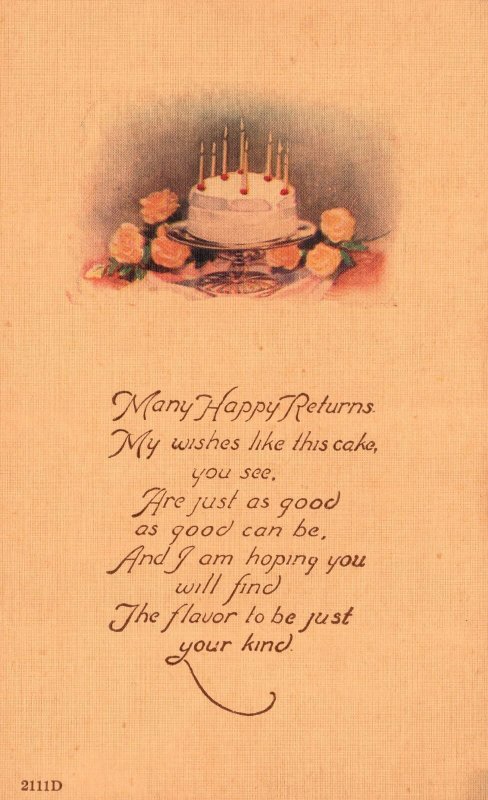 Many Happy Returns.
My wishes like this cake,
you see,
Are just as good
as good can be,
And I am hoping you
will find
The flavor to be just
your kind.
2111D